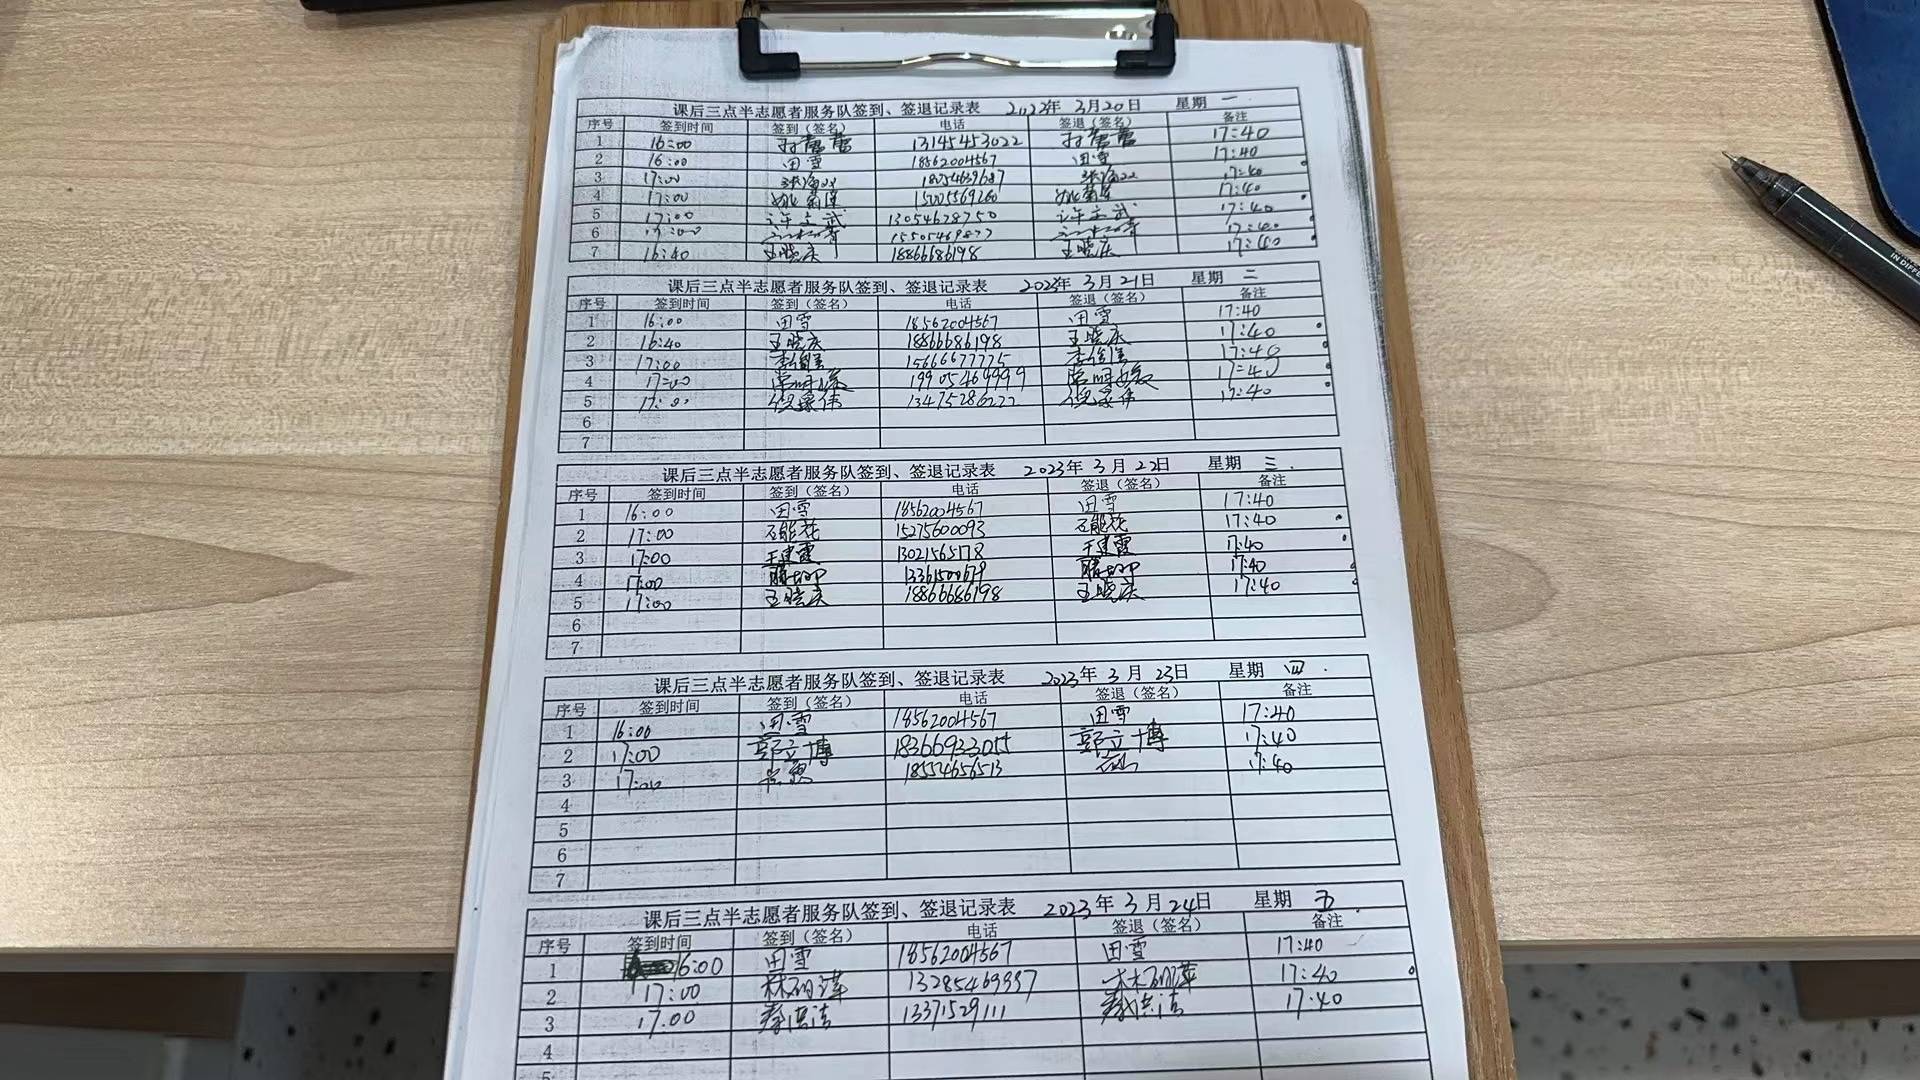 课后三点半志愿者服务队签到、签退记录表 2023年 3月20日 星期 一
序号 签到时间 签到（签名） 电话 签退（签名） 备注
1 16:00 13145453022 17:40
2 16:00 田雪 18562004567 田雪 17:40
3 17:00 18054639687 17:40
4 17:00 15005569260 17:40
5 17:00 许立武 13054628750 许立武 17:40
6 17:00 17:40
7 16:40 王晓庆 18866686198 王晓庆 17:40
课后三点半志愿者服务队签到、签退记录表 2023年 3月21日 星期 二
序号 签到时间 签到（签名） 电话 签退（签名） 备注
1 16:00 田雪 18562004567 田雪 17:40
2 16:40 王晓庆 18866686198 王晓庆 17:40
3 17:00 15666677775 17:40
4 17:00 19905469999 17:40
5 17:00 倪家伟 13475286222 倪家伟 17:40
6
7
课后三点半志愿者服务队签到、签退记录表 2023年 3月22日 星期 三.
序号 签到时间 签到（签名） 电话 签退（签名） 备注
1 16:00 田雪 18562004567 田雪 17:40
2 17:00 石能花 15275600093 石能花 17:40
3 17:00 王建霞 13021565178 王建霞 17:40
4 17:00 13361500679 17:40
5 17:00 王晓庆 18866686198 王晓庆 17:40
6
7
课后三点半志愿者服务队签到、签退记录表 2023年 3月 23日 星期 四.
序号 签到时间 签到（签名） 电话 签退（签名） 备注
1 16:00 田雪 18562004567 田雪 17:40
2 17:00 郭立博 18366933055 郭立博 17:40
3 17:00 18554656513 17:40
4
5
6
7
课后三点半志愿者服务队签到、签退记录表 2023年 3月 24日 星期 五.
序号 签到时间 签到（签名） 电话 签退（签名） 备注
1 16:00 田雪 18562004567 田雪 17:40
2 17:00 13285469997 17:40
3 17:00 秦洪洁 13371529111 秦洪洁 17:40
4
5